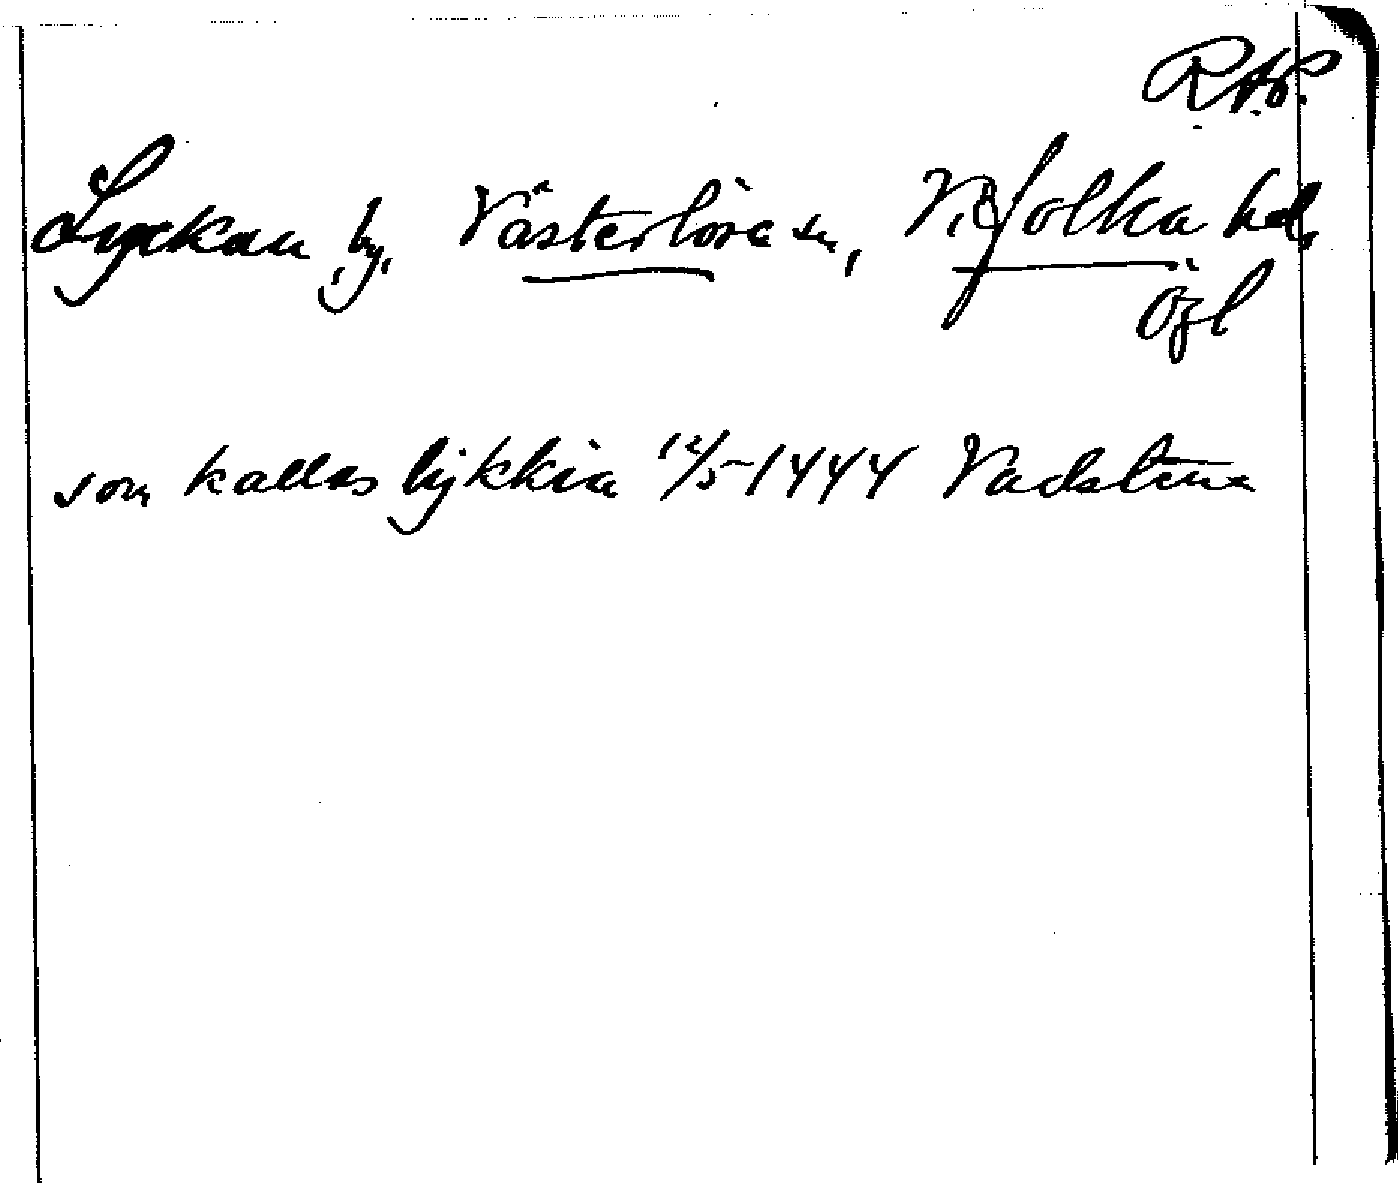 RAP.
Lyckan, by, Västerlösa sn, Vifolka hd,
Ögl
som kallas lykkia 12/5 1444 Vadstena